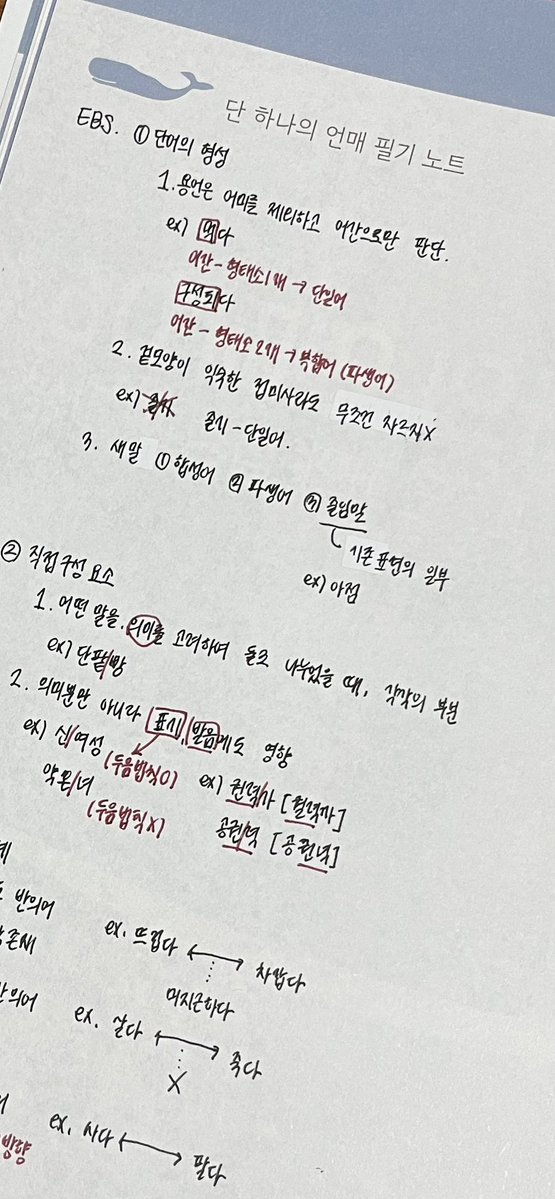 단 하나의 언매 필기 노트
EBS. ① 단어의 형성
1. 용언은 어미를 제외하고 어간으로만 판단.
ex) 먹다
어간 - 형태소 1개 → 단일어
구성되다
어간 - 형태소 2개 → 복합어 (파생어)
2. 겉모양이 익숙한 접미사라도 무조건 자르지X
ex) 줄기 - 단일어.
3. 새말 ① 합성어 ② 파생어 ③ 줄임말
기존 표현의 일부
ex) 아점
② 직접 구성 요소
1. 어떤 말을, 의미를 고려하여 둘로 나누었을 때, 각각의 부분
ex) 단팥/빵
2. 의미뿐만 아니라 표기, 발음에도 영향
ex) 신/여성 (두음법칙O) ex) 권력/자 [궐력짜]
(두음법칙X) 공권/력 [공권녁]
반의어
ex. 뜨겁다 ↔ 차갑다
미지근하다
반의어
ex. 살다 ↔ 죽다
X
ex. 사다 ↔ 팔다
방향